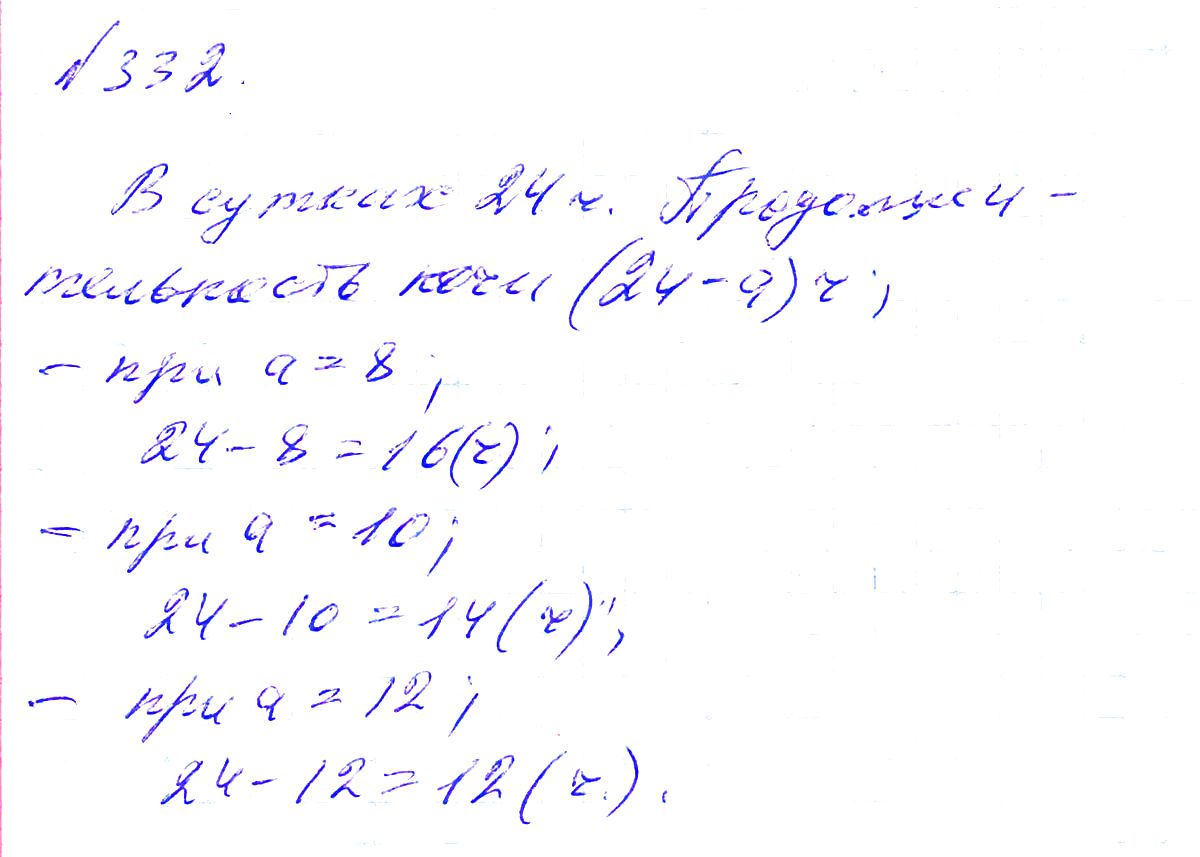 №332.
В сутках 24 ч. Продолжи-
тельность ночи (24-a) ч;
- при a = 8;
24 - 8 = 16(ч);
- при a = 10;
24 - 10 = 14(ч);
- при a = 12;
24 - 12 = 12(ч.).